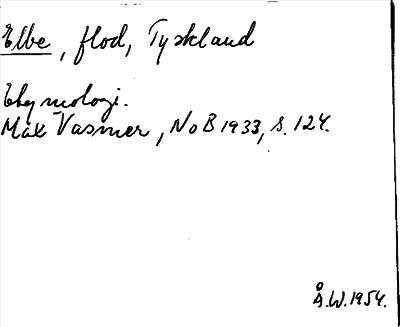 Elbe, flod, Tyskland
Etymologi.
Max Vasmer, NoB 1933, s. 124.
Å.W. 1954.